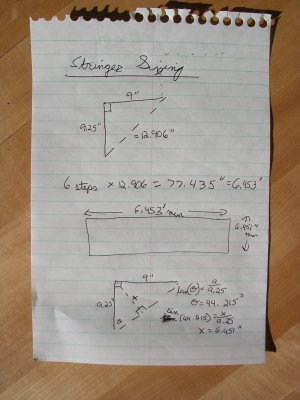 Stringer Sizing
9"
9.25"
=12.906"
6 steps × 12.906 = 77.435" = 6.453'
6.453' min
6.451"
min
9"
9.25"
x
θ
tan(θ) = 9/9.25
θ = 44.215°
sin(44.215) = x/9.25
x = 6.451"